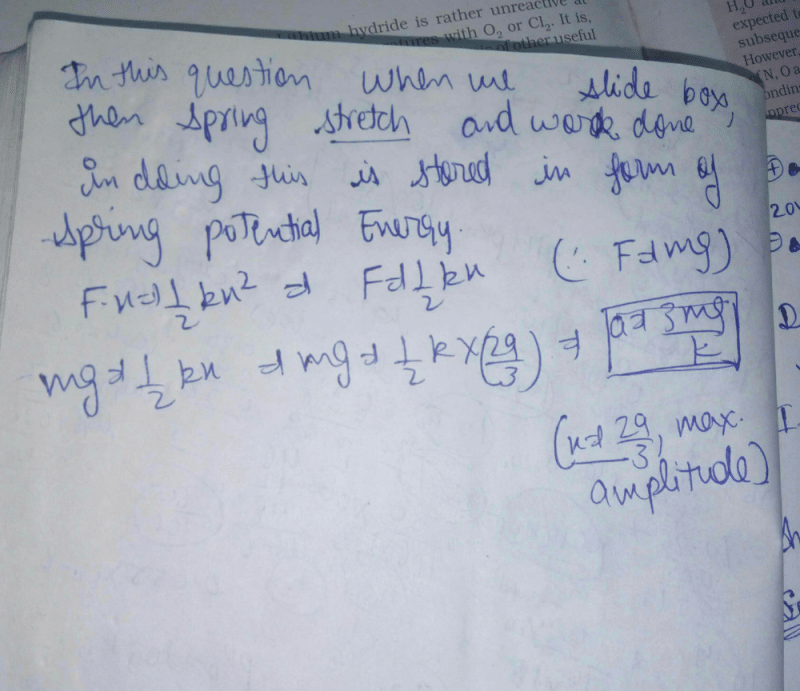 hydride is rather unreactive at
with O₂ or Cl₂. It is,
of other useful
H₂O and
expected to
subseque
However,
(N, O a
In this question when we slide box,
then spring stretch and work done
in doing this is stored in form of
spring potential Energy.
F.x ⇒ 1/2 kx² ⇒ F ⇒ 1/2 kx (∵ F ⇒ mg)
mg ⇒ 1/2 kx ⇒ mg ⇒ 1/2 k × (2a/3) ⇒ a ⇒ 3mg/k
(x ⇒ 2a/3, max.
amplitude)